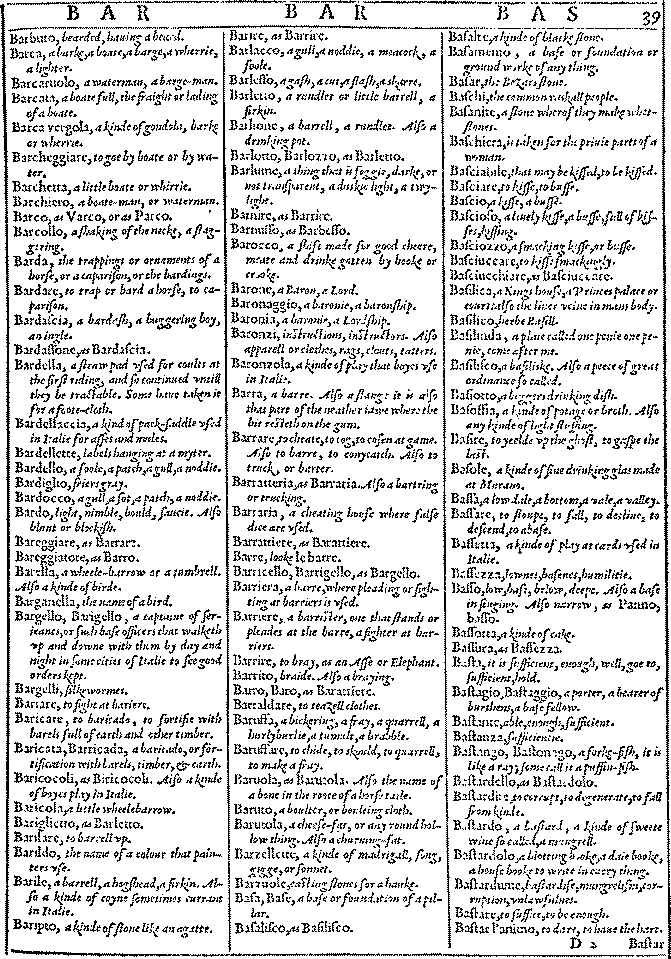 B A R
B A R
B A S
39
Barbuto, bearded, hauing a beard.
Barca, a barke, a boate, a barge, a wherrie,
a lighter.
Barcaruolo, a waterman, a barge-man.
Barcata, a boate full, the fraight or lading
of a boate.
Barca vergola, a kinde of gondola, barke
or wherrie.
Barcheggiare, to goe by boate or by wa-
ter.
Barchetta, a little boate or whirrie.
Barchiero, a boate-man, or waterman.
Barco, as Varco, or as Parco.
Barcollo, a shaking of the necke, a stag-
gering.
Barda, the trappings or ornaments of a
horse, or a caparison, or the bardings.
Bardare, to trap or bard a horse, to ca-
parison.
Bardascia, a bardash, a buggering boy,
an ingle.
Bardassone, as Bardascia.
Bardella, a straw pad vsed for coults at
the first riding, and so continued vntill
they be tractable. Some haue taken it
for a foote-cloth.
Bardellaccia, a kind of pack-saddle vsed
in Italie for asses and moles.
Bardellette, labels hanging at a myter.
Bardello, a foole, a patch, a gull, a noddie.
Bardiglio, friers gray.
Bardocco, a gull, a sot, a patch, a noddie.
Bardo, light, nimble, bould, saucie. Also
blunt or blockish.
Bareggiare, as Barrare.
Bareggiatore, as Barro.
Barella, a wheele-barrow or a tumbrell.
Also a kinde of birde.
Barganella, the name of a bird.
Bargello, Barigello, a captaine of ser-
ieants, or such base officers that walketh
vp and downe with them by day and
night in some cities of Italie to see good
orders kept.
Bargelli, silkewormes.
Bariare, to fight at bariers.
Baricare, to baricado, to fortifie with
barels full of earth and other timber.
Baricata, Barricada, a baricado, or for-
tification with barels, timber, & earth.
Baricocoli, as Biricocoli. Also a kinde
of boyes play in Italie.
Baricola, a little wheelebarrow.
Bariglietto, as Barletto.
Barilare, to barrell vp.
Barildo, the name of a colour that pain-
ters vse.
Barile, a barrell, a hogshead, a firkin. Al-
so a kinde of coyne sometimes currant
in Italie.
Baripto, a kinde of stone like an agatte.
Barire, as Barrire.
Barlacco, a gull, a noddie, a meacock, a
foole.
Barlesso, a gash, a cut, a slash, a skarre.
Barletto, a rundlet or little barrell, a
firkin.
Barlione, a barrell, a rundlet. Also a
drinking pot.
Barlotto, Barlozzo, as Barletto.
Barlume, a thing that is foggie, darke, or
not transparent, a duskie light, a twy-
light.
Barnire, as Barrire.
Barnusso, as Barbosso.
Barocco, a shift made for good cheere,
meate and drinke gotten by hooke or
crooke.
Barone, a Baron, a Lord.
Baronaggio, a baronie, a baronship.
Baronia, a baronie, a Lordship.
Baronzi, instructions, instructors. Also
apparell or clothes, rags, clouts, tatters.
Baronzola, a kinde of play that boyes vse
in Italie.
Barra, a barre. Also a stang: it is also
that part of the neather iawe where the
bit resteth on the gum.
Barrare, to cheate, to cog, to cosen at game.
Also to barre, to conycatch. Also to
truck, or barter.
Barratteria, as Barraria. Also a bartring
or trucking.
Barraria, a cheating house where false
dice are vsed.
Barrattiere, as Barattiere.
Barre, looke le barre.
Barricello, Barrigello, as Bargello.
Barriera, a barre, where pleading or figh-
ting at barriers is vsed.
Barriere, a barrister, one that stands or
pleades at the barre, a fighter at bar-
riers.
Barrire, to bray, as an Asse or Elephant.
Barrito, braide. Also a braying.
Barro, Baro, as Barattiere.
Barzaldare, to teazell clothes.
Baruffa, a bickering, a fray, a quarrell, a
hurlyburlie, a tumult, a brabble.
Baruffare, to chide, to skould, to quarrell,
to make a fray.
Baruola, as Baruola. Also the name of
a bone in the roote of a horse taile.
Baruto, a boulter, or boulting cloth.
Barutola, a cheese-fat, or any round hol-
low thing. Also a churning-fat.
Barzelletta, a kinde of madrigall, song,
gigge, or sonnet.
Barzuole, casting stones for a hauke.
Basa, Base, a base or foundation of a pil-
lar.
Basalisco, as Basilisco.
Basalte, a kinde of blacke stone.
Basamento, a base or foundation or
ground worke of any thing.
Basar, the Bezar stone.
Baschi, the common raskall people.
Basanite, a stone whereof they make whet-
stones.
Baschiera, is taken for the priuie parts of a
woman.
Basciabile, that may be kissed, to be kissed.
Basciare, to kisse, to busse.
Bascio, a kisse, a busse.
Bascioso, a luely kisse, a busse, full of kis-
ses, kissing.
Basciozzo, a smacking kisse, or busse.
Basciuccare, to kisse smackingly.
Basciucchiare, as Basciuccare.
Basilica, a Kings house, a Princes palace or
court: also the liuer veine in mans body.
Basilico, herbe Basill.
Basilinda, a play called one penie one pe-
nie, come after me.
Basilisco, a basiliske. Also a peece of great
ordinance so called.
Basiotto, a beggers drinking dish.
Basoffia, a kinde of potage or broth. Also
any kinde of light slossing.
Basire, to yeelde vp the ghost, to gaspe the
last.
Basole, a kinde of fine drinking glas made
at Murano.
Bassa, a low dale, a bottom, a vale, a valley.
Bassare, to stoupe, to fall, to decline, to
descend, to abase.
Bassetta, a kinde of play at cards vsed in
Italie.
Bassezza, lownes, basenes, humilitie.
Basso, low, base, below, deepe. Also a base
in singing. Also narrow, as Panno,
basso.
Bassotta, a kinde of cake.
Bassura, as Bassezza.
Basta, it is sufficient, enough, well, goe to,
sufficient, hold.
Bastagio, Bastaggio, a porter, a bearer of
burthens, a base fellow.
Bastante, able, enough, sufficient.
Bastanza, sufficiencie.
Bastango, Bastonago, a forke-fish, it is
like a ray; some call it a puffin-fish.
Bastardello, as Bastardolo.
Bastardire, to corrupt, to degenerate, to fall
from kinde.
Bastardo, a bastard, a kinde of sweete
wine so called, a mungrell.
Bastardolo, a blotting booke, a daie booke,
a house booke to write in euery thing.
Bastardume, bastar life, mungrelisme, cor-
ruption, vnlawfulnes.
Bastare, to suffice, to be enough.
Bastar l'animo, to dare, to haue the hart.
D 2
Bastar